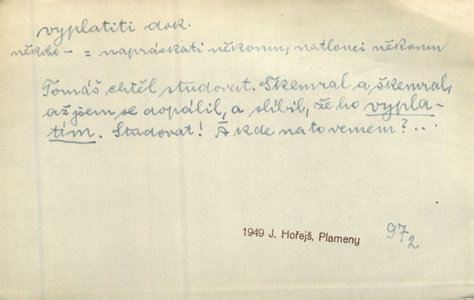 vyplatiti dok.
někoho – = naprásk​ati někomu, natlouci někomu
Tomáš chtěl studovat. Škemral a škemral,
až jsem se dopálil, a slíbil, že ho vypla-
tím. Studovat! A kde na to vemem?...
1949 J. Hořejš, Plameny
97₂